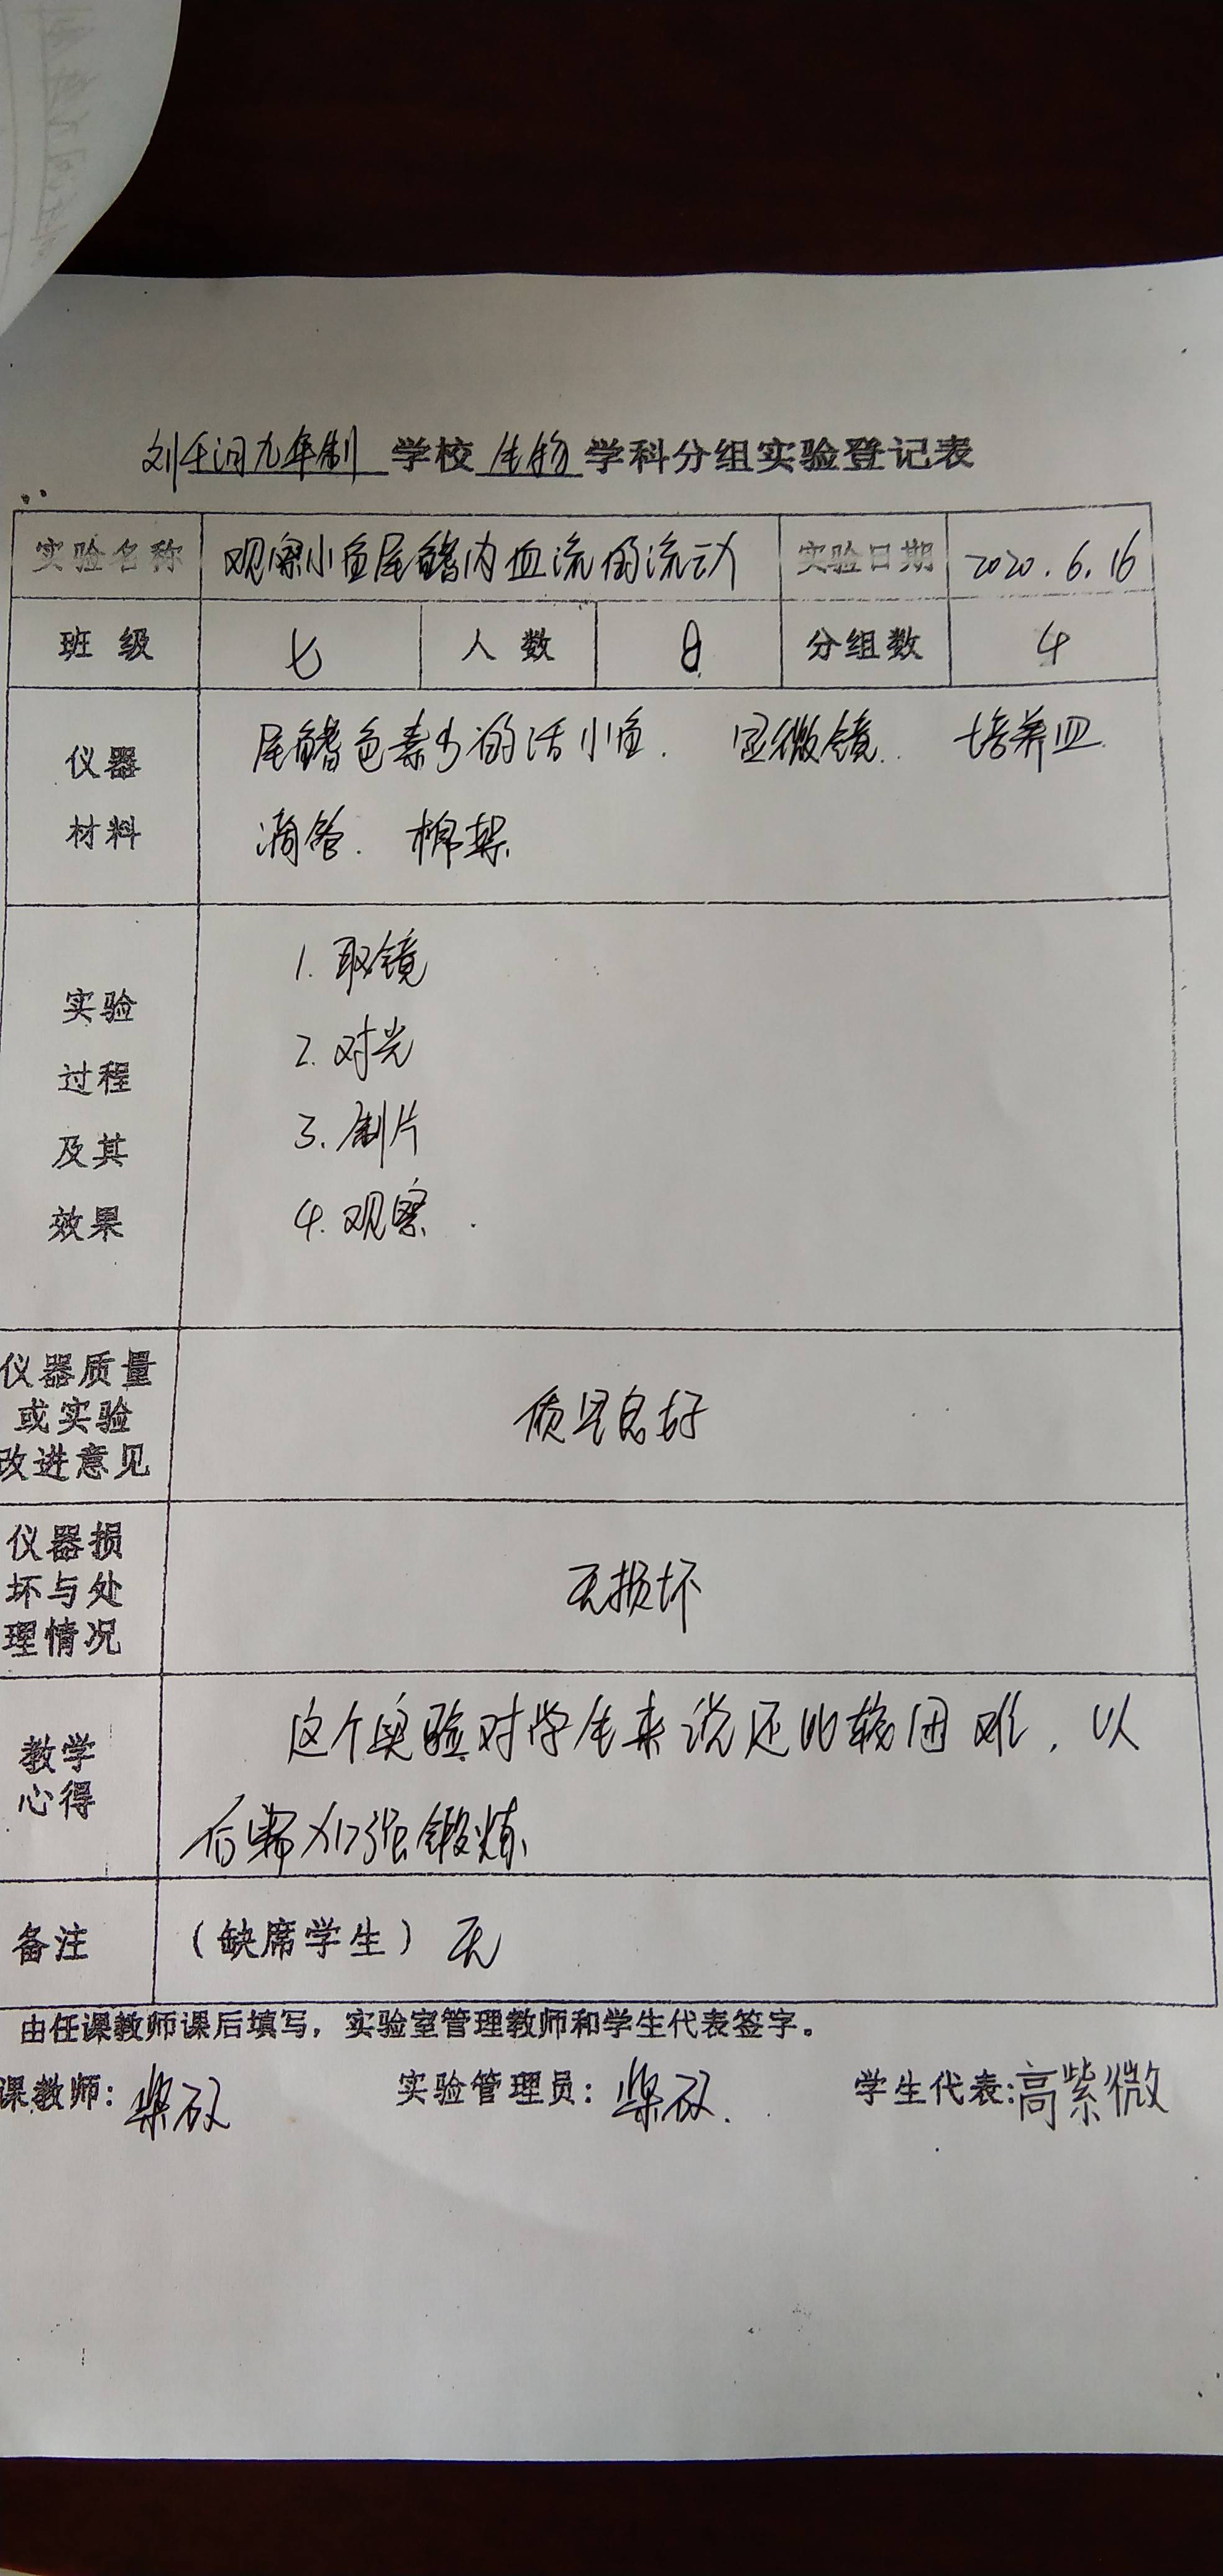 刘千河九年制学校生物学科分组实验登记表
实验名称 观察小鱼尾鳍内血流的流动 实验日期 2020.6.16
班级 七 人数 8 分组数 4
仪器材料
尾鳍色素少的活小鱼. 显微镜. 培养皿
滴管. 棉絮.
实验过程及其效果
1. 取镜
2. 对光
3. 制片
4. 观察.
仪器质量
或实验
改进意见
质量良好
仪器损
坏与处
理情况
无损坏
教学
心得
这个实验对学生来说还比较困难, 以
后需加强锻炼.
备注 (缺席学生) 无
由任课教师课后填写，实验室管理教师和学生代表签字。
课教师: 柴 实验管理员: 柴 学生代表: 高紫微